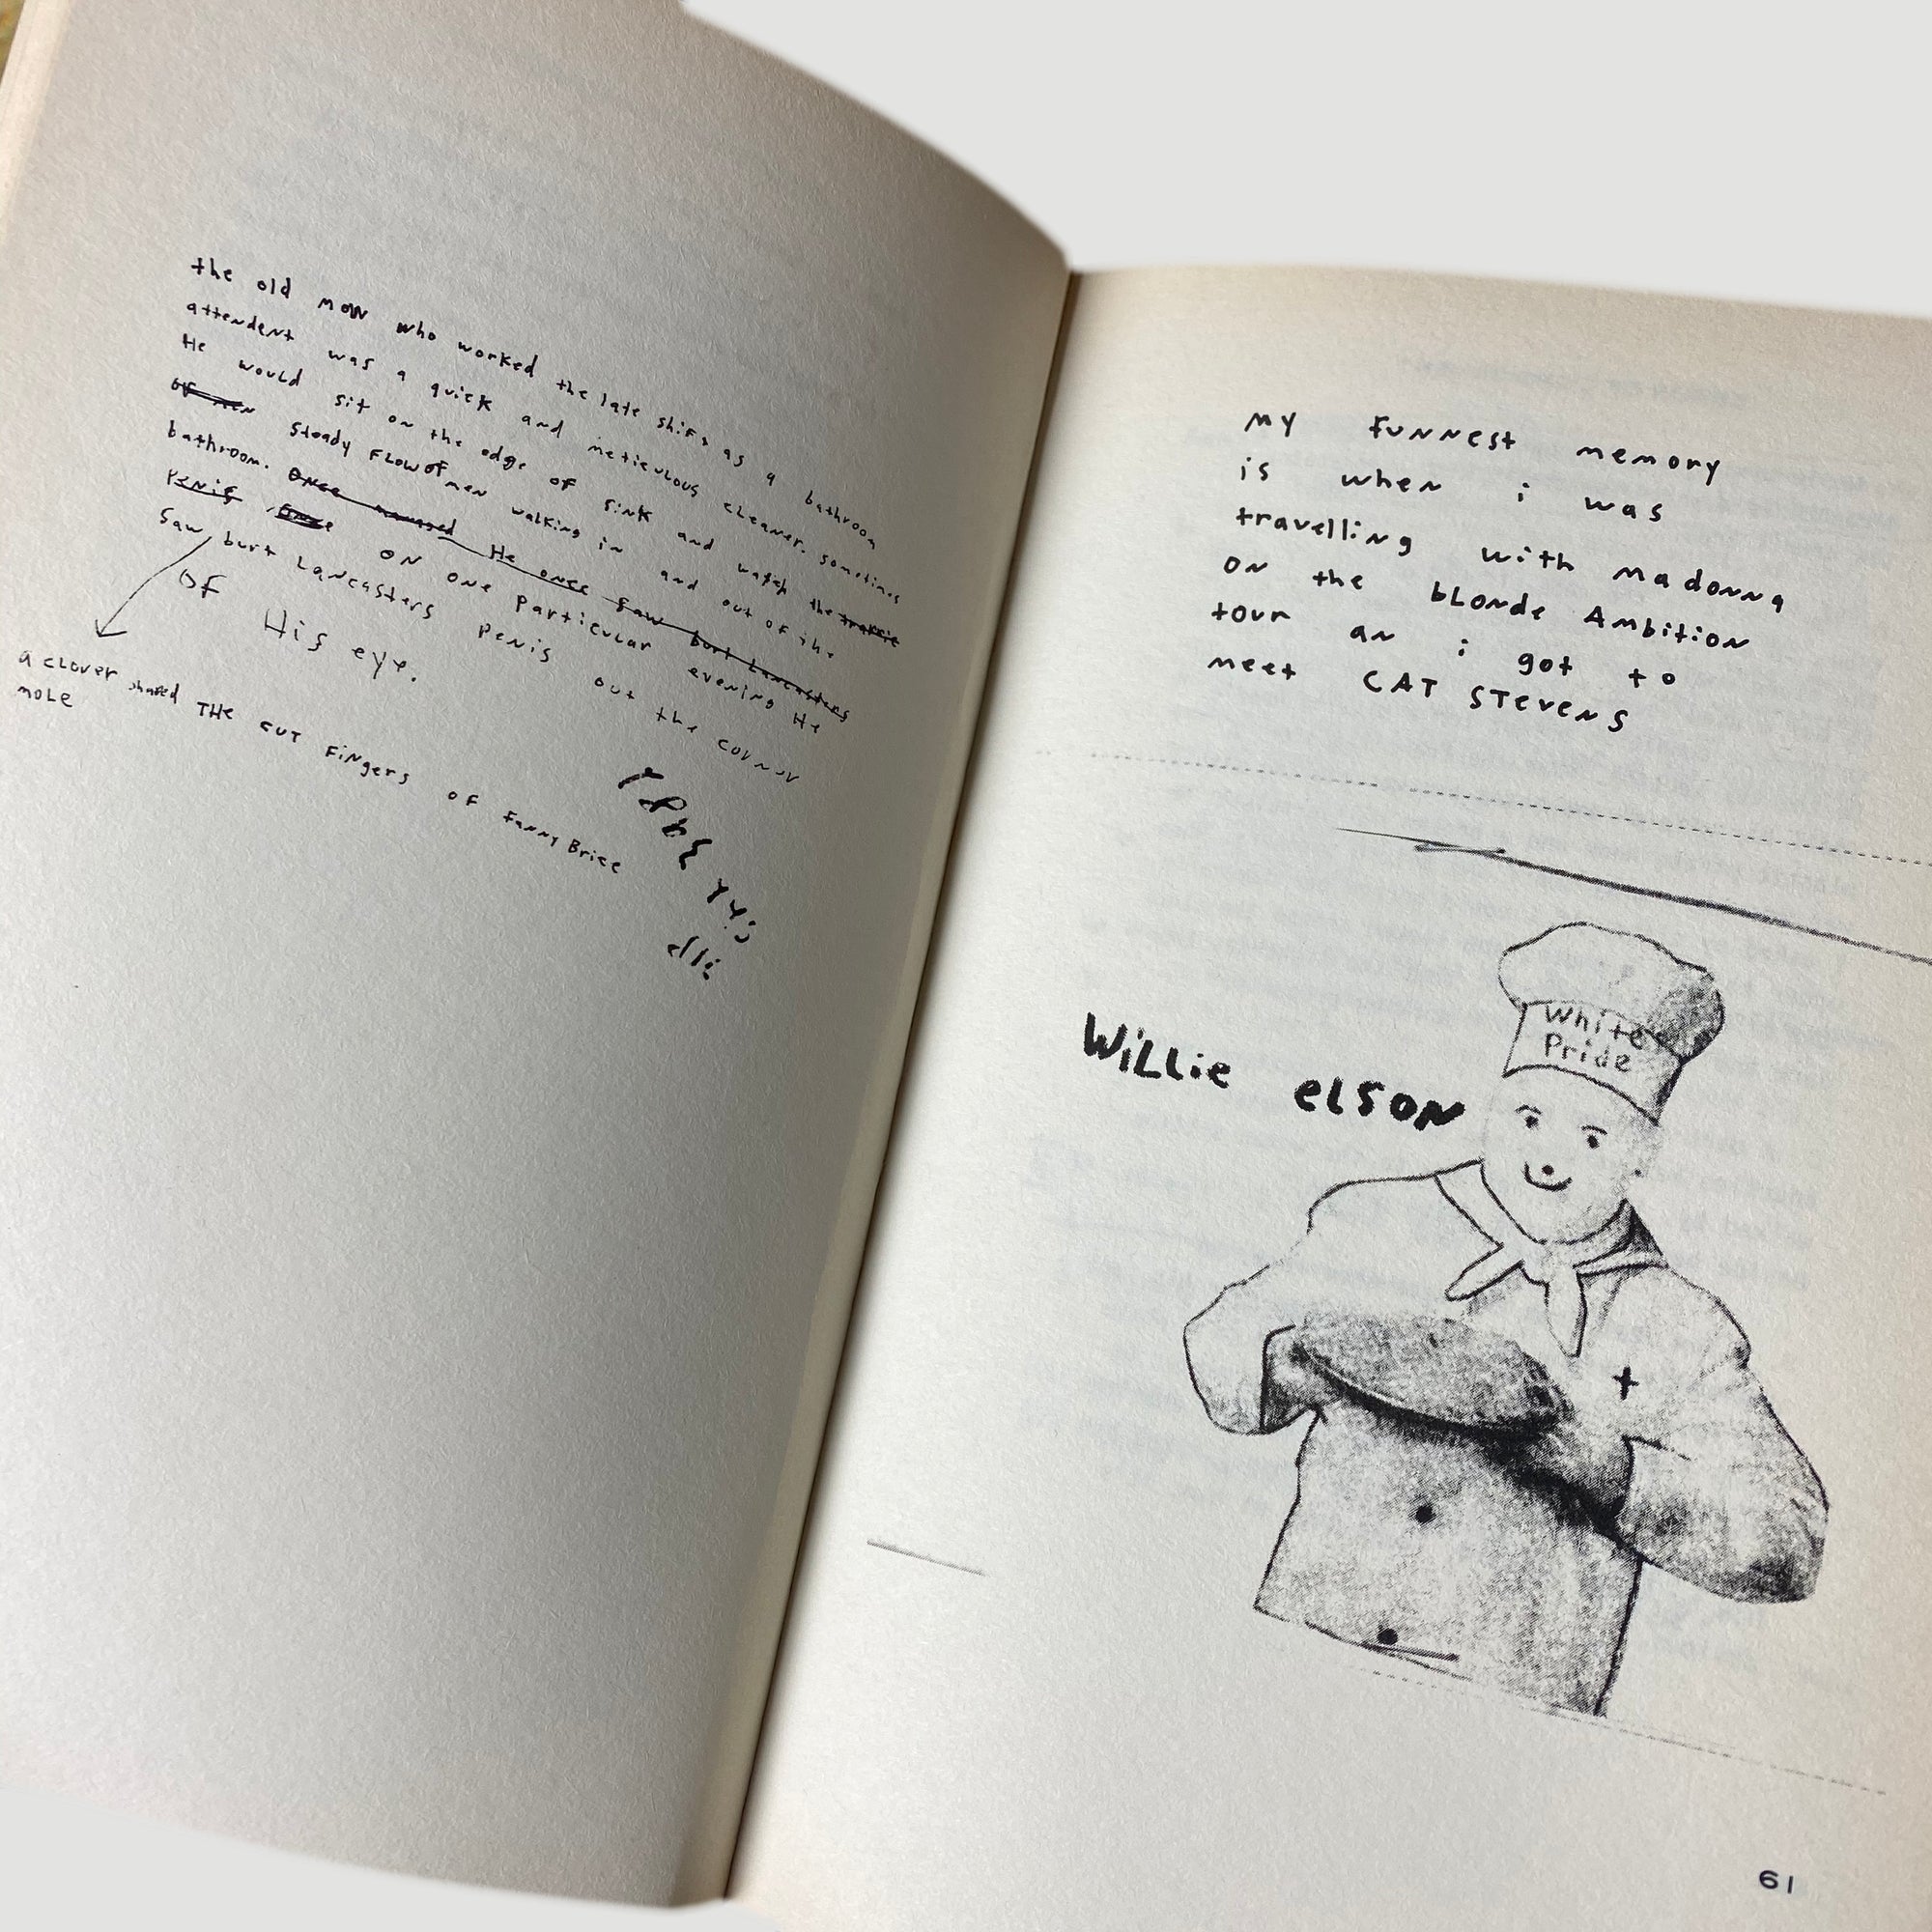 the old man who worked the late shift as a bathroom
attendent was a quick and meticulous cleaner. sometimes
He would sit on the edge of sink and watch the traffic
of men steady flow of men walking in and out of the
bathroom. Once He once saw burt Lancasters
Penis on one particular evening He
saw burt Lancasters penis out the corner
of His eye.
a clover shaped
mole
THe cut fingers of Fanny Brice
my funnest memory
is when i was
travelling with madonna
on the bLonde Ambition
tour an i got to
meet CAT STevens
WiLLie eLson
White
Pride
61